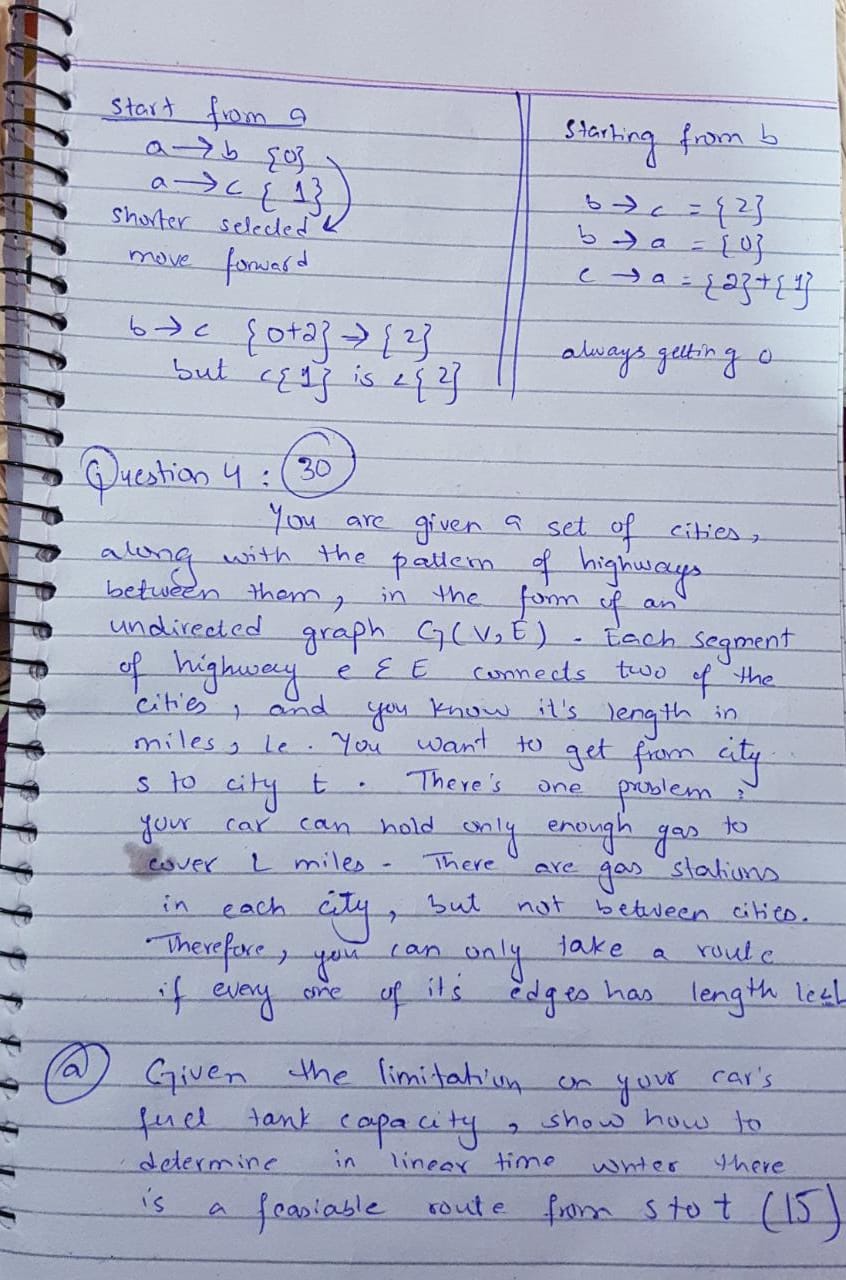 start from a
a → b {0}
a → c {1}
shorter selected
move forward
b → c {0+2} → {2}
but c{1} is < {2}
Starting from b
b → c = {2}
b → a = {0}
c → a = {2}+{1}
always getting 0
Question 4 : (30)
You are given a set of cities,
along with the pattern of highways
between them, in the form of an
undirected graph G(V,E). Each segment
of highway e ε E connects two of the
cities, and you know it's length in
miles, le. You want to get from city
s to city t. There's one problem :
your car can hold only enough gas to
cover L miles. There are gas stations
in each city, but not between cities.
Therefore, you can only take a route
if every one of its edges has length le≤L
(a) Given the limitation on your car's
fuel tank capacity, show how to
determine in linear time whter there
is a feasiable route from s to t (15)